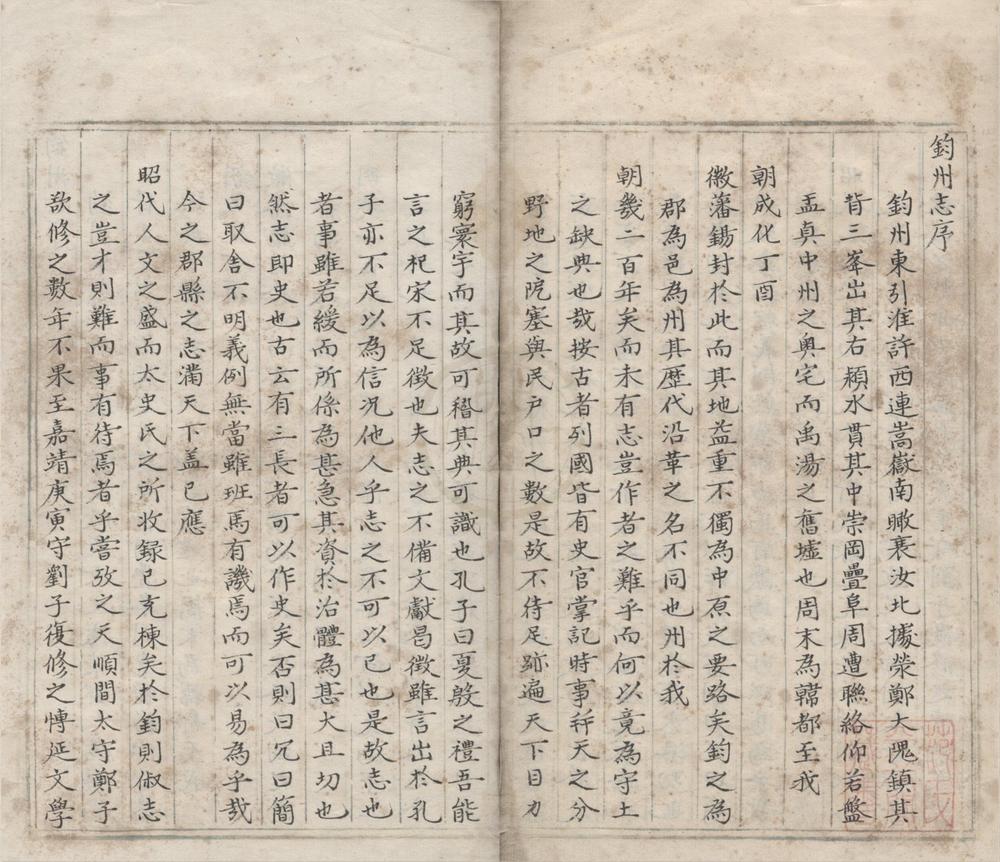 鈞州志序
鈞州東引淮許西連嵩嶽南瞰襄汝北據滎鄭大隗鎮其
背三峯出其右潁水貫其中崇岡疊阜周遭聯絡仰若盤
盂真中州之奥宅而禹湯之舊墟也周末為韓都至我
朝成化丁酉
徽藩鍚封於此而其地益重不獨為中原之要路矣鈞之為
郡為邑為州其歷代沿革之名不同也州於我
朝幾二百年矣而未有志豈作者之難乎而何以竟為守土
之缺典也哉按古者列國皆有史官掌記時事稱天之分
野地之阨塞與民戶口之數是故不待足跡遍天下目力
窮寰宇而其故可稽其典可識也孔子曰夏殷之禮吾能
言之杞宋不足徵也夫志之不備文獻曷徵雖言出於孔
子亦不足以為信况他人乎志之不可以已也是故志也
者事雖若緩而所係為甚急其資於治體為甚大且切也
然志即史也古云有三長者可以作史矣否則曰冗曰簡
曰取舍不明義例無當雖班馬有譏焉而可以易為乎哉
今之郡縣之志滿天下盖已應
昭代人文之盛而太史氏之所收録已充棟矣於鈞則俶志
之豈才則難而事有待焉者乎嘗攷之天順間太守鄭子
欲修之數年不果至嘉靖庚寅守劉子復修之愽延文學